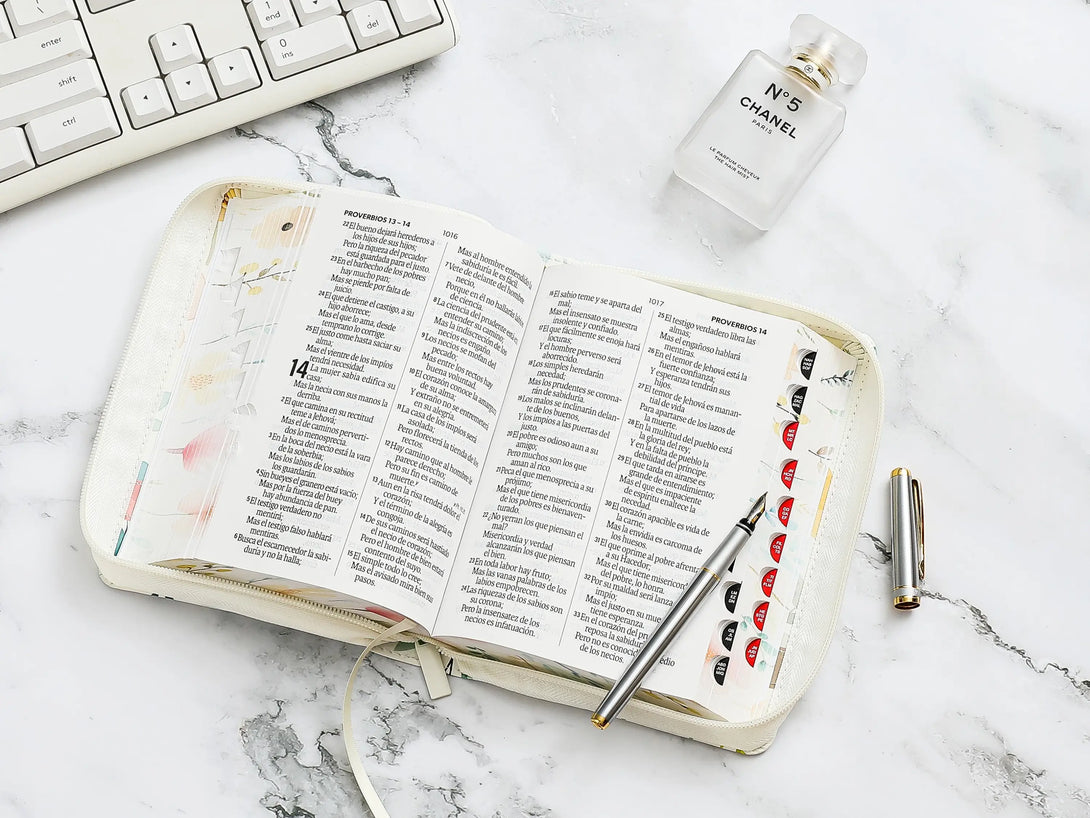 \
enter
shift
ctrl
1
end
0
ins
.
del
N°5
CHANEL
PARIS
LE PARFUM CHEVEUX
THE HAIR MIST
PROVERBIOS 13 – 14
1016
22 El bueno dejará herederos a
los hijos de sus hijos;
Pero la riqueza del pecador
está guardada para el justo.
23 En el barbecho de los pobres
hay mucho pan;
Mas se pierde por falta de
juicio.
24 El que detiene el castigo, a su
hijo aborrece;
Mas el que lo ama, desde
temprano lo corrige.
25 El justo come hasta saciar su
alma;
Mas el vientre de los impíos
tendrá necesidad.
14 La mujer sabia edifica su
casa;
Mas la necia con sus manos la
derriba.
2 El que camina en su rectitud
teme a Jehová;
Mas el de caminos perverti-
dos lo menosprecia.
3 En la boca del necio está la vara
de la soberbia;
Mas los labios de los sabios
los guardarán.
4 Sin bueyes el granero está vacío;
Mas por la fuerza del buey
hay abundancia de pan.
5 El testigo verdadero no
mentirá;
Mas el testigo falso hablará
mentiras.
6 Busca el escarnecedor la sabi-
duría y no la halla;
Mas al hombre entendido la
sabiduría le es fácil.
7 Vete de delante del hombre
necio,
Porque en él no hallarás labios
de ciencia.
8 La ciencia del prudente está en
entender su camino;
Mas la indiscreción de los
necios es engaño.
9 Los necios se mofan del
pecado;
Mas entre los rectos hay
buena voluntad.
10 El corazón conoce la amargura
de su alma;
Y extraño no se entremeterá
en su alegría.
11 La casa de los impíos será
asolada;
Pero florecerá la tienda de los
rectos.
12 Hay camino que al hombre le
parece derecho;
Pero su fin es camino de
muerte.
13 Aun en la risa tendrá dolor el
corazón;
Y el término de la alegría es
congoja.
14 De sus caminos será hastiado
el necio de corazón;
Pero el hombre de bien estará
contento del suyo.
15 El simple todo lo cree;
Mas el avisado mira bien sus
pasos.
1017
PROVERBIOS 14
16 El sabio teme y se aparta del
mal;
Mas el insensato se muestra
insolente y confiado.
17 El que fácilmente se enoja hará
locuras;
Y el hombre perverso será
aborrecido.
18 Los simples heredarán
necedad;
Mas los prudentes se corona-
rán de sabiduría.
19 Los malos se inclinarán delan-
te de los buenos,
Y los impíos a las puertas del
justo.
20 El pobre es odioso aun a su
amigo;
Pero muchos son los que
aman al rico.
21 Peca el que menosprecia a su
prójimo;
Mas el que tiene misericordia
de los pobres es bienaven-
turado.
22 ¿No yerran los que piensan el
mal?
Misericordia y verdad
alcanzarán los que piensan
el bien.
23 En toda labor hay fruto;
Mas las vanas palabras de los
labios empobrecen.
24 Las riquezas de los sabios son
su corona;
Pero la insensatez de los
necios es infatuación.
25 El testigo verdadero libra las
almas;
Mas el engañoso hablará
mentiras.
26 En el temor de Jehová está la
fuerte confianza;
Y esperanza tendrán sus
hijos.
27 El temor de Jehová es manan-
tial de vida
Para apartarse de los lazos de
la muerte.
28 En la multitud del pueblo está
la gloria del rey;
Y en la falta de pueblo la
debilidad del príncipe.
29 El que tarda en airarse es
grande de entendimiento;
Mas el que es impaciente
de espíritu enaltece la
necedad.
30 El corazón apacible es vida de
la carne;
Mas la envidia es carcoma de
los huesos.
31 El que oprime al pobre afrenta
a su Hacedor;
Mas el que tiene misericordia
del pobre, lo honra.
32 Por su maldad será lanzado
impío;
Mas el justo en su muerte
tiene esperanza.
33 En el corazón del pru
reposa la sabiduría
Pero no es conocida medio
de los necios.